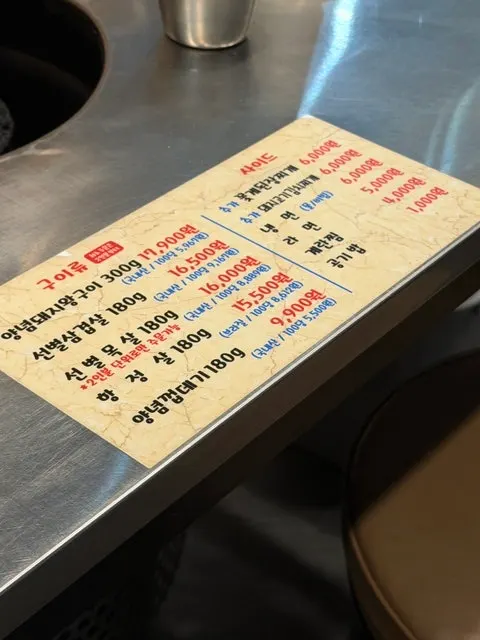 구이류
양념돼지왕구이 300g 17,900원
(국내산 / 100당 5,967원)
선별삼겹살 180g 16,500원
(국내산 / 100당 9,167원)
선별목살 180g 16,000원
(국내산 / 100당 8,889원)
*2인분 단위로만 주문가능
항정살 180g 15,500원
(브라질 / 100당 8,612원)
양념껍데기 180g 9,900원
(국내산 / 100당 5,500원)
사이드
추가 꽃게된장찌개 6,000원
추가 돼지고기김치찌개 6,000원
냉면 (물/비빔) 6,000원
라면 5,000원
계란찜 4,000원
공기밥 1,000원